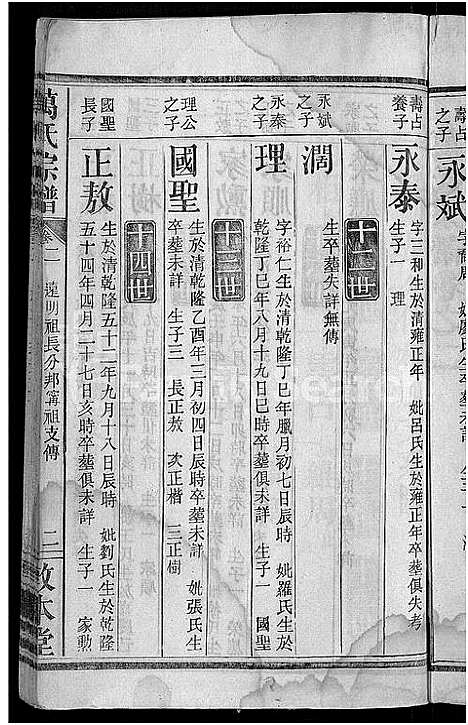 壽占之子
永斌
壽占養子
永泰
字三和生於清雍正年 妣呂氏生於雍正年卒塟俱失考
生子一 理
十二世
永斌之子
濶
生卒塟失詳無傳
永泰之子
理
字裕仁生於清乾隆丁巳年臘月初七日辰時 妣羅氏生於
乾隆丁巳年八月十九日巳時卒塟俱未詳 生子一 國聖
十三世
理公之子
國聖
生於清乾隆乙酉年三月初四日辰時卒塟未詳 妣張氏生
卒塟未詳 生子三 長正敖 次正楷 三正樹
十四世
國聖長子
正敖
生於清乾隆五十二年九月十八日辰時 妣劉氏生於乾隆
五十四年四月二十七日亥時卒塟俱未詳 生子一 家勳
萬氏宗譜
卷一
遠明祖長分邦籌祖支傳
二
敦本堂